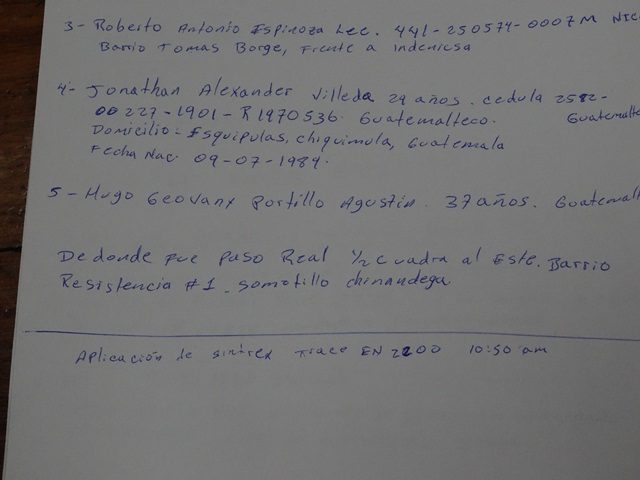 3- Roberto Antonio Espinoza Lee. 441-250574-0007M Nic
Barrio Tomas Borge, Frente a Indenicsa
4- Jonathan Alexander Villeda 29 años. cedula 2582-
00227-1901-R1970536. Guatemalteco. Guatemal
Domicilio- Esquipulas, chiquimula, Guatemala
Fecha Nac. 09-07-1989.
5- Hugo Geovany Portillo Agustin. 37 años. Guatemalt
De donde fue paso Real 1/2 cuadra al Este. Barrio
Resistencia #1. somotillo chinandega
Aplicación de sintrex Trace EN 2200 10:50 am